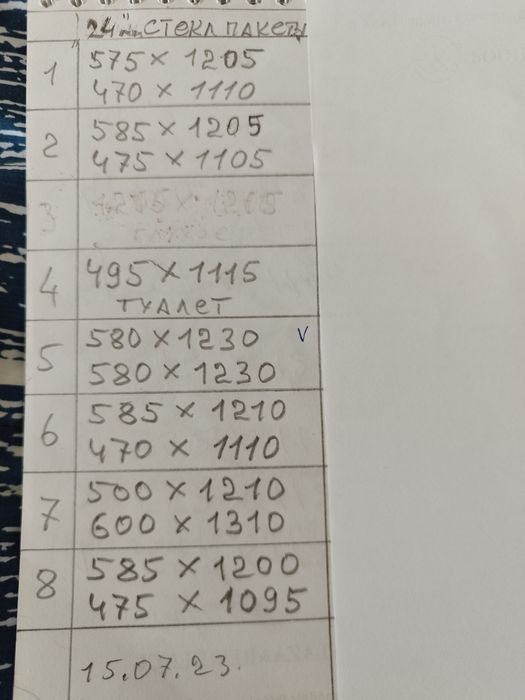 "24" мм СТЕКЛ ПАКЕТЫ
1 575 × 1205
470 × 1110
2 585 × 1205
475 × 1105
3
4 495 × 1115
ТУАЛЕТ
5 580 × 1230 V
580 × 1230
6 585 × 1210
470 × 1110
7 500 × 1210
600 × 1310
8 585 × 1200
475 × 1095
15.07.23.